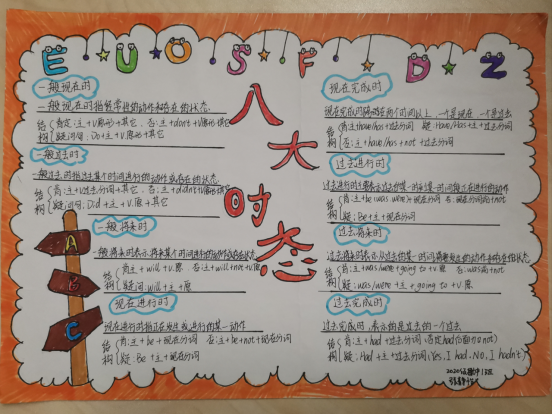 E U O S F D Z
八大时态
一般现在时
一般现在时指经常性的动作和存在的状态.
结构
肯定:主+V原形+其它. 否:主+don't+V原形+其它
疑问句: Do+主+V原形+其它
一般过去时
一般过去时指过去某个时间进行的动作或存在的状态
结构
肯:主+V过去分词+其它. 否:主+didn't+V原形+其它
疑问句: Did+主+V原+其它
一般将来时
一般将来时表示将来某个时间进行的动作或存在的状态
结构
肯:主+will+V原 否:主+will+not+V原
疑问:will+主+原
现在进行时
现在进行时指正在发生或进行的某一动作
结构
肯:主+be+现在分词 否:主+be+not+现在分词
疑: Be+主+现在分词
A
B
C
现在完成时
现在完成时 两个时间以上,一个是现在 一个是过去
结构
肯:主+have/has+过去分词 疑:Have/Has+主+过去分词
否:主+have/has+not+过去分词
过去进行时
过去进行时主要表示过去的某一时刻某一时间段正在进行的动作
结构
肯:主+be(was were)+现在分词 否:
疑: Be+主+现在分词
过去将来时
过去将来时表示从过去的某一时间 的动作和存在的状态
结构
肯:主+was/were+going to+V原 否:was后+not
疑:was/were+主+going to+V原
过去完成时
过去完成时,表示的是过去的一个过去
结构
肯:主+had+过去分词(否定had后面加not)
疑: Had+主+过去分词(Yes, I had. No, I hadn't)
2020级